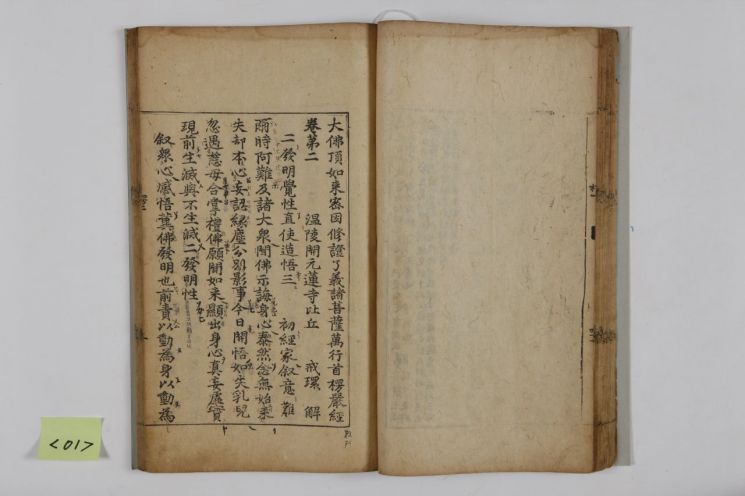 大佛頂如來密因修證了義諸菩薩萬行首楞嚴經
卷第二 溫陵開元蓮寺比丘 戒環 解
二發明覺性直使造悟三 初經家叙意
爾時阿難及諸大衆聞佛示誨身心泰然念無始來
失却本心妄認緣塵分別影事今日開悟如失乳兒
忽遇慈母合掌禮佛願聞如來顯出身心真妄虛實
現前生滅與不生滅二發明性
叙衆心感悟冀佛發明也前責以動為身以動為
<01>